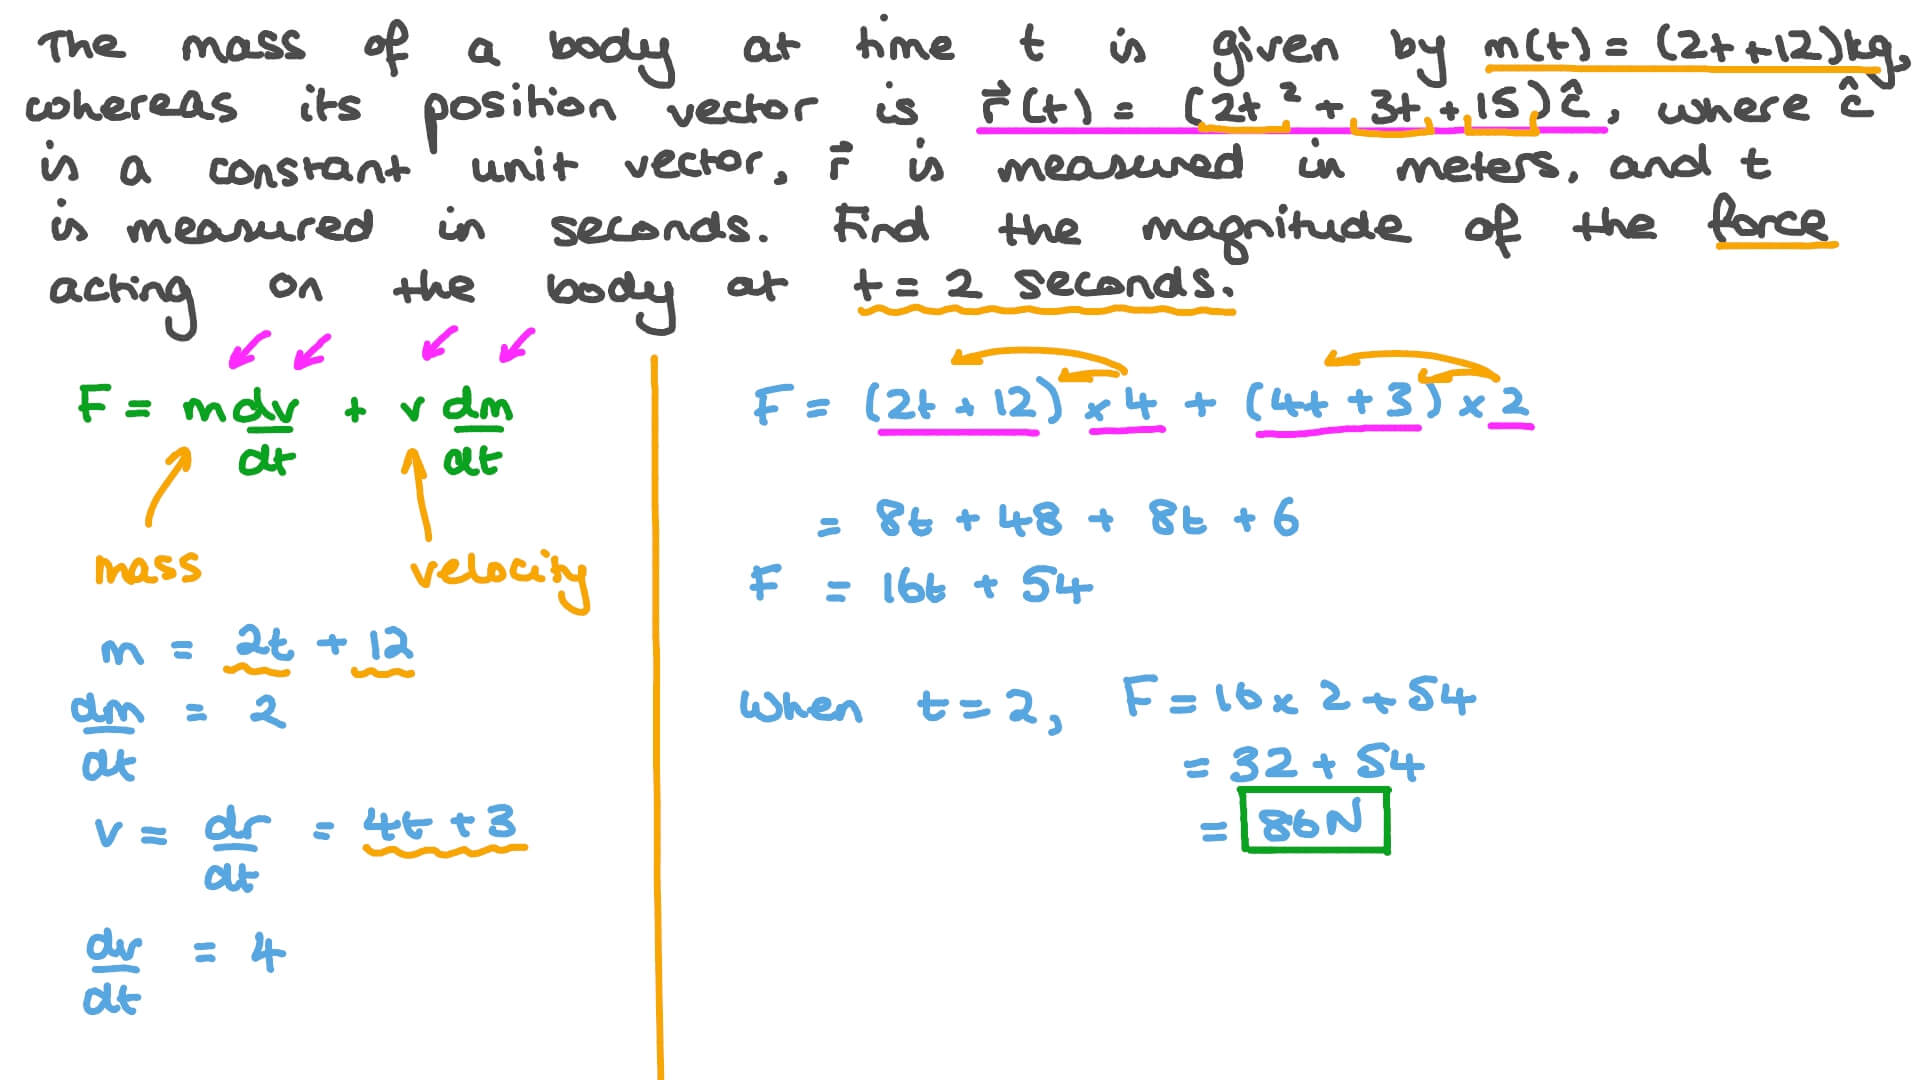 The mass of a body at time t is given by m(t) = (2t+12)kg,
whereas its position vector is r⃗(t) = (2t² + 3t + 15)ĉ, where ĉ
is a constant unit vector, r⃗ is measured in meters, and t
is measured in seconds. Find the magnitude of the force
acting on the body at t = 2 seconds.
F = m dv/dt + v dm/dt
mass velocity
m = 2t + 12
dm/dt = 2
v = dr/dt = 4t + 3
dv/dt = 4
F = (2t + 12) × 4 + (4t + 3) × 2
= 8t + 48 + 8t + 6
F = 16t + 54
When t = 2, F = 16 × 2 + 54
= 32 + 54
= 86N